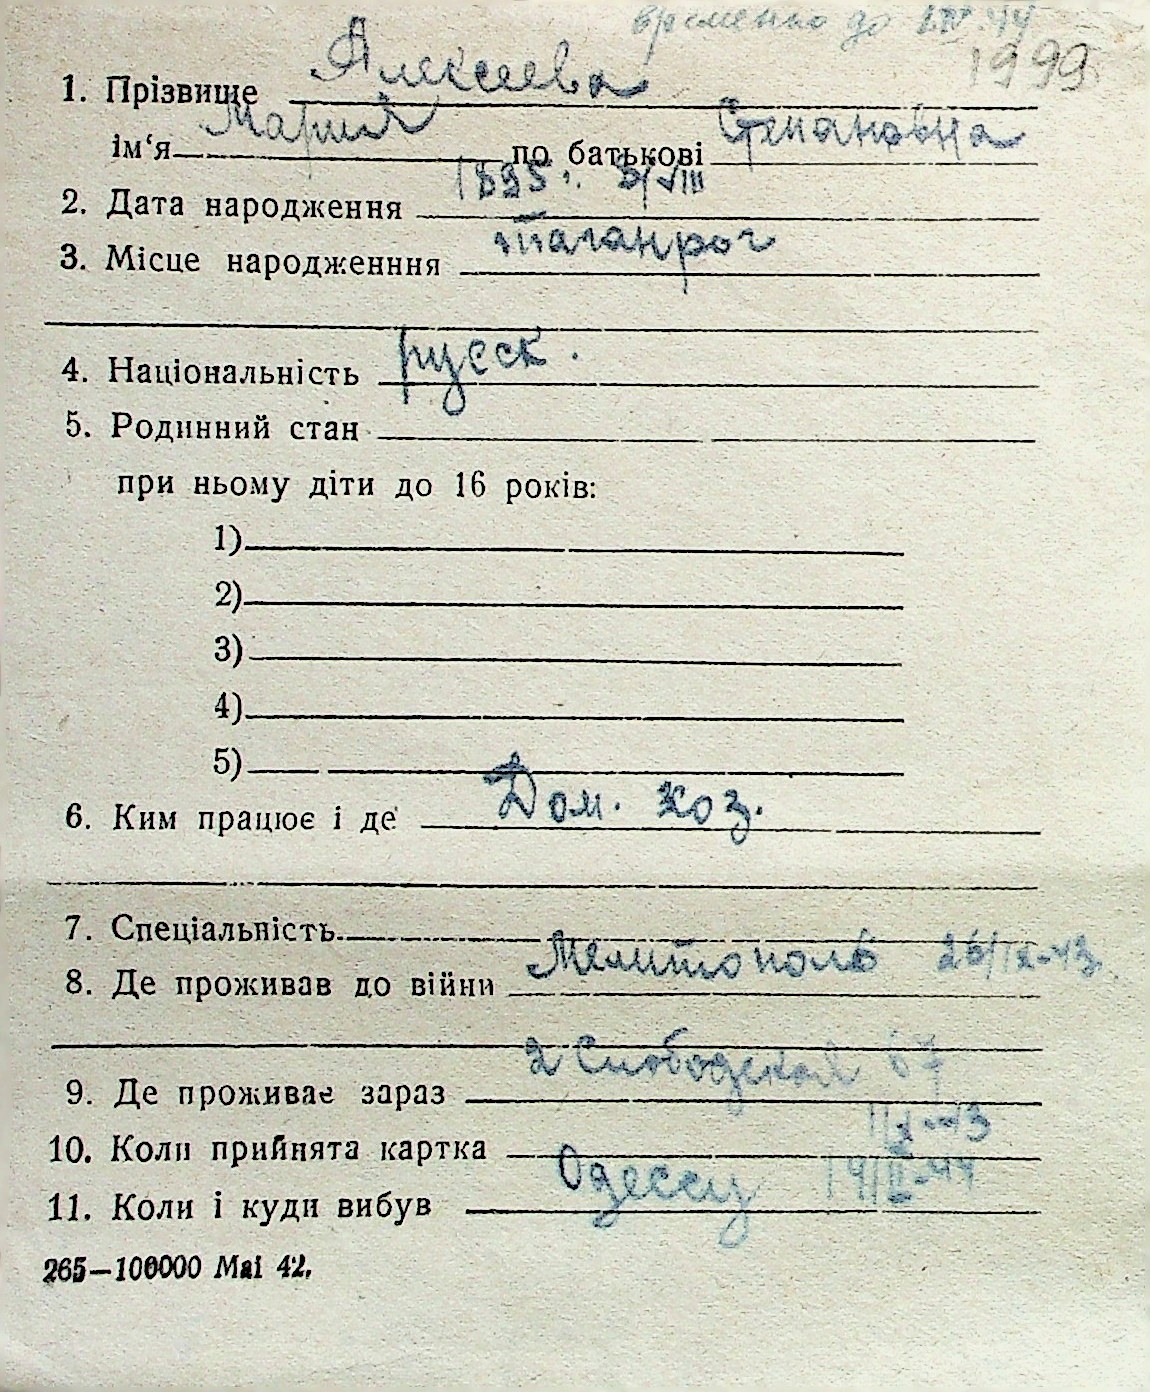 временно до
1999
1. Прізвище Алексеева
ім‘я Мария по батькові Степановна
2. Дата народження 1895 г. 3/VIII
3. Місце народженння Таганрог
4. Національність русск.
5. Родинний стан
при ньому діти до 16 років:
1)
2)
3)
4)
5)
6. Ким працює і де Дом. хоз.
7. Спеціальність
8. Де проживав до війни Мелитополь 26/IX-43
9. Де проживає зараз 2 Слободская 67
10. Коли прийнята картка
11. Коли і куди вибув Одессу
265—100000 Mai 42.